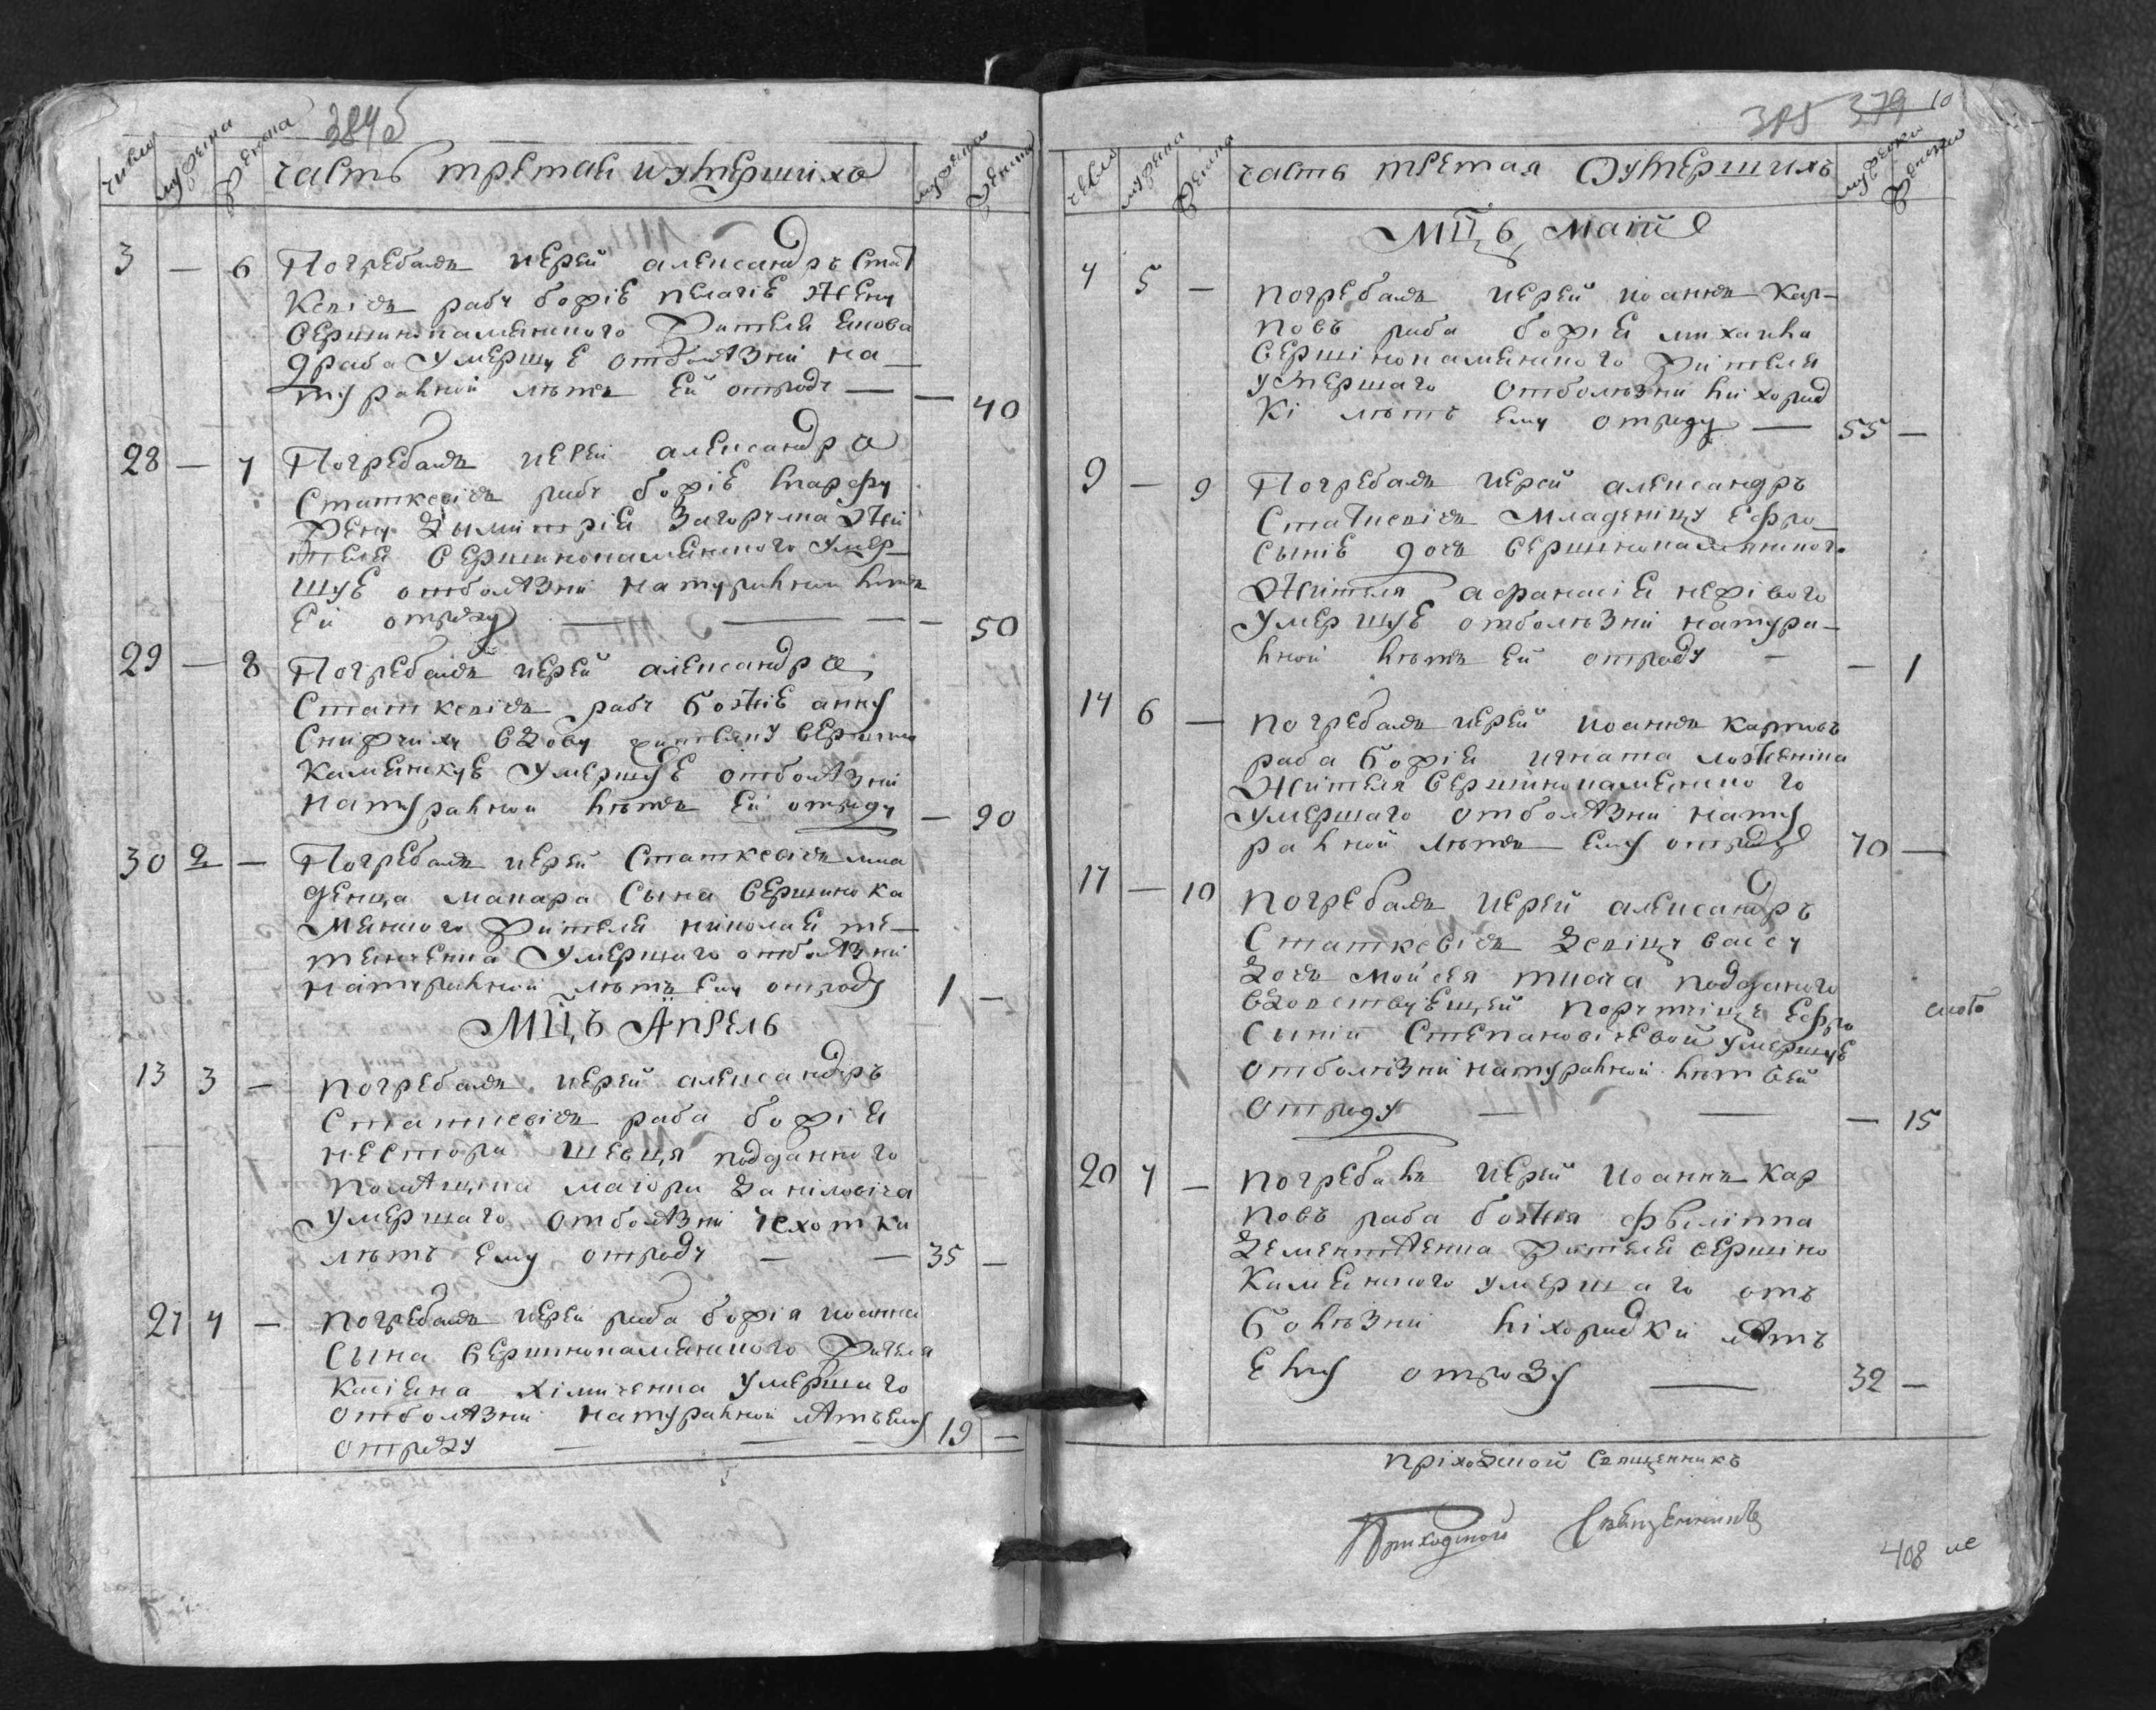 384об
число мужеска женска часть третая и умершихъ мужеска женска
3 — 6 Погребалъ иерей александръ стат
кевичъ рабу божіе пелагіе жену
вершинокаменного жителя якова
драба умершуе отболѣзни на
туралной лѣтъ ей отроду — — 40
28 — 7 Погребалъ иерей александръ
статкевичъ рабу божіе марфу
жену дымитрія загорулка жи
теля вершинокаменного умер
шуе отболѣзни натуралной лѣтъ
ей отроду — 50
29 — 8 Погребалъ иерей александръ
статкевичъ рабу божіе анну
вдову жителку вершино
каменскуе умершуе отболѣзни
натуралной лѣтъ ей отроду — 90
30 2 — Погребалъ иерей статкевичъ мла
денца макара сына вершинока
менного жителя николая те
умершаго отболѣзни
натуралной лѣтъ ему отроду 1 —
Мцъ Апрель
13 3 — погребалъ иерей александръ
статкевичъ раба божія
нестора шевця подданного
помѣщика маіора даниловича
умершаго отболѣзни чехотки
лѣтъ ему отроду — — 35 —
27 4 — погребалъ иерей раба божія иоанна
сына вершинокаменного жителя
касіяна умершаго
отболѣзни натуралной лѣтъ ему
отроду — 19 —
385 379 10
число мужеска женска часть третая о умершихъ мужеска женска
Мцъ Маій
4 5 — погребалъ иерей иоаннъ кар-
повъ раба божія михаила
вершинокаменного жителя
умершаго отболѣзни лихорад
ки лѣтъ ему отроду — 55 —
9 — 9 Погребалъ иерей александръ
статкевичъ младеницу ефро
синіе дочь вершинокаменного
жителя афанасія
умершуе отболѣзни натура-
лной лѣтъ ей отроду — — 1
14 6 — погребалъ иерей иоаннъ карповъ
раба божія игната
жителя вершинокаменного
умершаго отболѣзни нату
ралной лѣтъ ему отроду 70 —
17 — 10 погребалъ иерей александръ
статкевичъ девицу
дочь мойсея ткача подданого
вдовствуещей порутчице ефро
синіи степановичевой умершуе
отболѣзни натуралной лѣтъ ей
отроду — — — 15
20 7 — погребалъ иерей иоаннъ кар
повъ раба божия филиппа
жителя вершино
каменного умершаго отъ
болѣзни лихорадки лѣтъ
ему отроду — 32 —
приходской священникъ
Приходской Священникъ
408